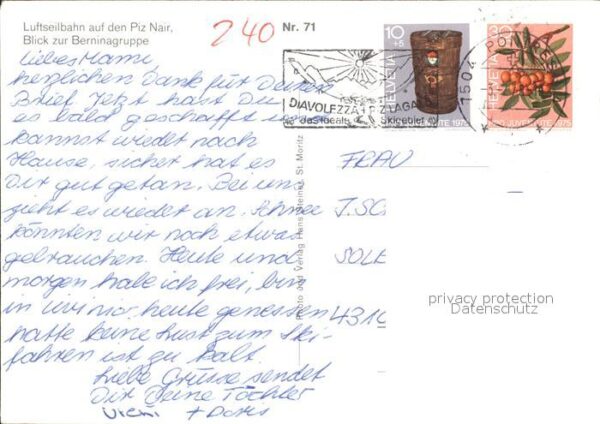 Luftseilbahn auf den Piz Nair,
Blick zur Berninagruppe
240
Nr. 71
liebes Mami
herzlichen Dank für Deinen
Brief. Jetzt hast Du
es bald geschafft und
kannst wieder nach
Hause, sicher hat es
Dir gut getan. Bei uns
zieht es wieder an. Schnee
könnten wir noch etwas
gebrauchen. Heute und
morgen habe ich frei, bin
in heute geniessen
hatte keine Lust zum Ski-
fahren ist zu kalt.
Liebe Grüsse sendet
Dir Deine Töchter
+ Doris
Photo und Verlag Hans Steiner, St. Moritz
10
+5
HELVETIA
1975
HELVETIA
PRO JUVENTUTE 1975
DIAVOLEZZA LAGALB
das ideale Skigebiet
7504
FRAU
J. SC
SOLE
4310
privacy protection
Datenschutz